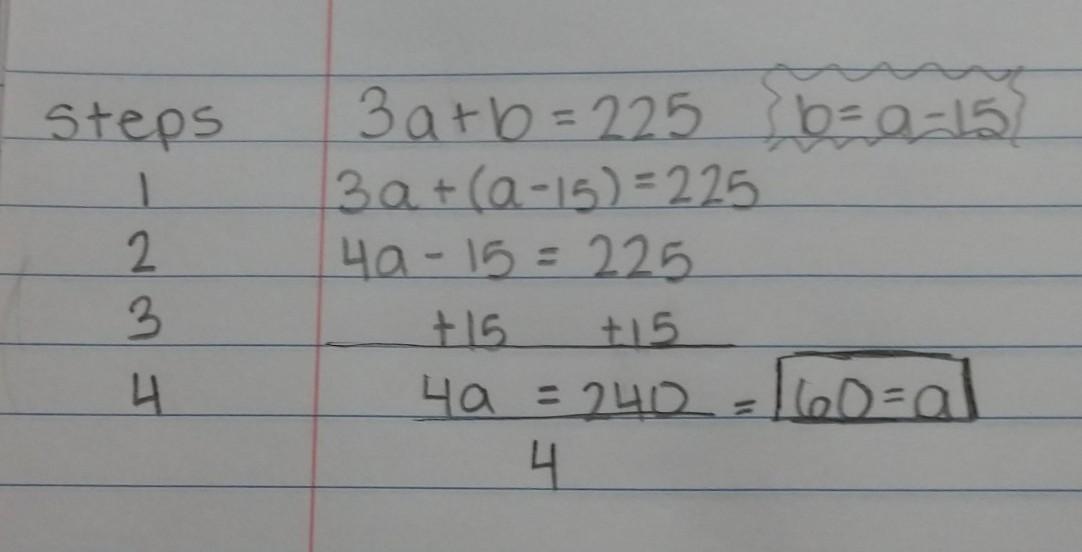 steps 3a+b=225 b=a-15
1 3a+(a-15)=225
2 4a-15=225
3 +15 +15
4 4a = 240 = 60=a
4